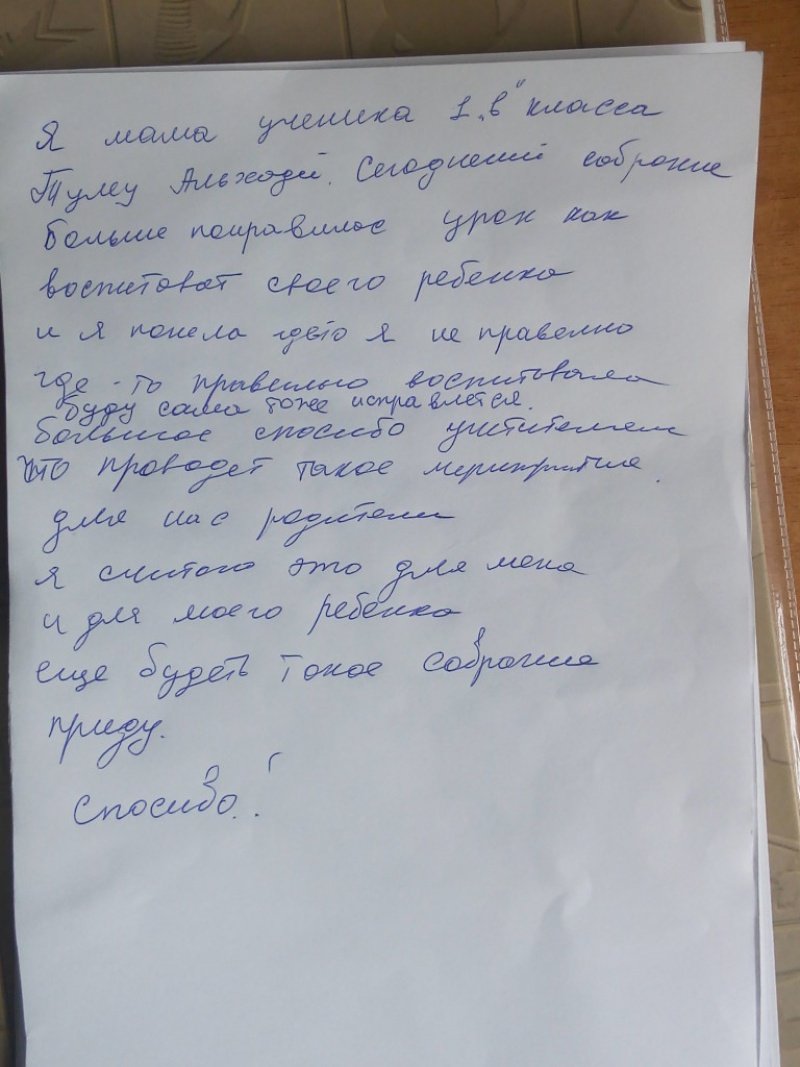 Я мама ученика 1 „в" класса
Тулеу Альходи. Сегоднений собрание
больше понравилос урок как
воспитоват своего ребенка
и я понела где то я не правелно
где-то правельно воспитовала
буду сама тоже исправлется.
большое спосибо учитителем
что проводет такое мериприятие.
для нас родители
я считаю это для меня
и для моего ребенка
еще будеть такое собрание
приду.
Спосибо!